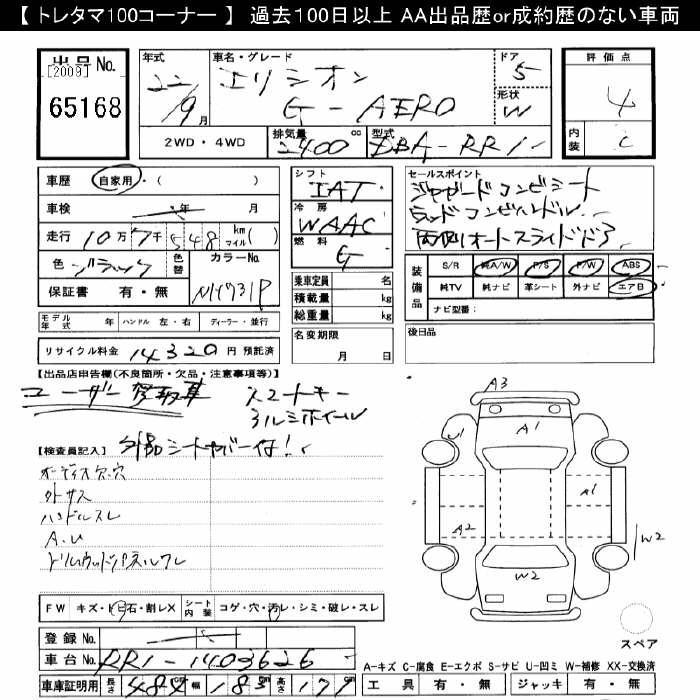 【 トレタマ100コーナー 】 過去100日以上 AA出品歴or成約歴のない車両
出品No.
[2009]
65168
年式 22 9月
車名・グレード エリシオン
G-AERO
ドア 5
形状 W
2WD・4WD
排気量 2400 cc
型式 DBA-RR1
評価点 4
内装 C
車歴 自家用・( )
車検 年 月
走行 10万7千548 km マイル( )
色 ブラック
色替
カラーNo. NH731P
保証書 有・無
モデル年式 年 ハンドル 左・右 ディーラー・並行
リサイクル料金 14320 円 預託済
シフト IAT
冷房 WAAC
燃料 G
乗車定員 名
積載量 kg
総重量 kg
名変期限
月 日
セールスポイント
ジャガードコンビシート
ウッドコンビハンドル
両側オートスライドドア
装備品
S/R 純A/W P/S P/W ABS
純TV 純ナビ 革シート 外ナビ エアB
ナビ型番:
後日品
【出品店申告欄(不良箇所・欠品・注意事項等)】
ユーザー買取車 スマートキー
アルミホイール
【検査員記入】 外品シートカバー付!
オーディオ欠・穴
外サス
ハンドルスレ
A.U
ドリムウッドパネルワレ
FW キズ・ヒ石・割レX シート内装 コゲ・穴・汚レ・シミ・破レ・スレ
登録No.
車台No. RR1-1403626
車庫証明用 長さ 484 cm 幅 183 cm 高さ 179
A3
U1
A1
A1
A2
W2
W2
スペア
A-キズ C-腐食 E-エクボ S-サビ U-凹ミ W-補修 XX-交換済
工具 有・無 ジャッキ 有・無